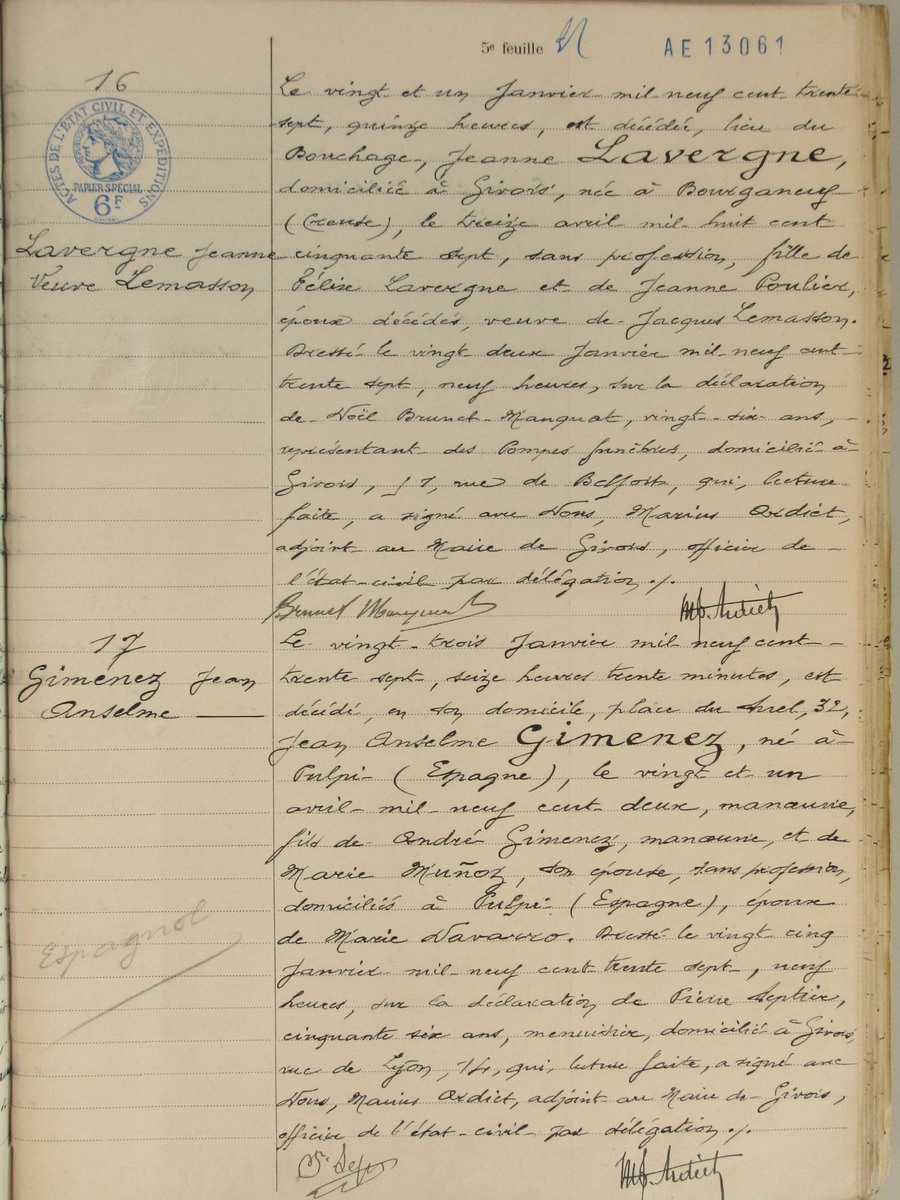 5e feuille
AE13061
16
ACTES DE L'ÉTAT CIVIL ET EXPÉDITIONS
PAPIER SPÉCIAL
6F
Lavergne Jeanne
Veuve Lemasson
Le vingt et un Janvier mil neuf cent trente-
sept, quinze heures, est décédée, lieu du
Bouchage, Jeanne Lavergne,
domiciliée à Givors, née à Bourganeuf
(Creuse), le treize avril mil huit cent
cinquante sept, sans profession, fille de
Lavergne et de Jeanne Poulier,
époux décédés, veuve de Jacques Lemasson.
Dressé le vingt deux Janvier mil neuf cent
trente sept, neuf heures, sur la déclaration
de Noël Brunet-Manquat, vingt-six ans,
représentant des Pompes funèbres, domicilié à
Givors, rue de Belfort, qui, lecture
faite, a signé avec Nous, Marius Ordict,
adjoint au Maire de Givors, officier de
l'état-civil par délégation ./.
Brunet Manquat
17
Gimenez Jean
Anselme
Espagnol
Le vingt-trois Janvier mil neuf cent
trente sept, seize heures trente minutes, est
décédé, en son domicile, place du Suel, 32,
Jean Anselme Gimenez, né à
Pulpi (Espagne), le vingt et un
avril mil neuf cent deux, manœuvre,
fils de André Gimenez, manœuvre, et de
Marie Muñoz, son épouse, sans profession,
domiciliés à Pulpi (Espagne), époux
de Marie Navarro. Dressé le vingt cinq
Janvier mil neuf cent trente sept, neuf
heures, sur la déclaration de Pierre Septier,
cinquante six ans, menuisier, domicilié à Givors,
rue de Lyon, 14, qui, lecture faite, a signé avec
Nous, Marius Ordict, adjoint au Maire de Givors,
officier de l'état-civil par délégation ./.